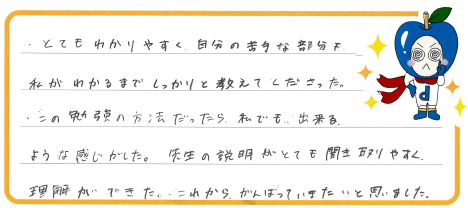 ・とてもわかりやすく、自分の苦手な部分を
私がわかるまでしっかりと教えてくださった。
・この勉強の方法だったら、私でも、出来る、
ような感じがした。先生の説明がとても聞き取りやすく、
理解ができた。これから、がんばっていきたいと思いました。
d